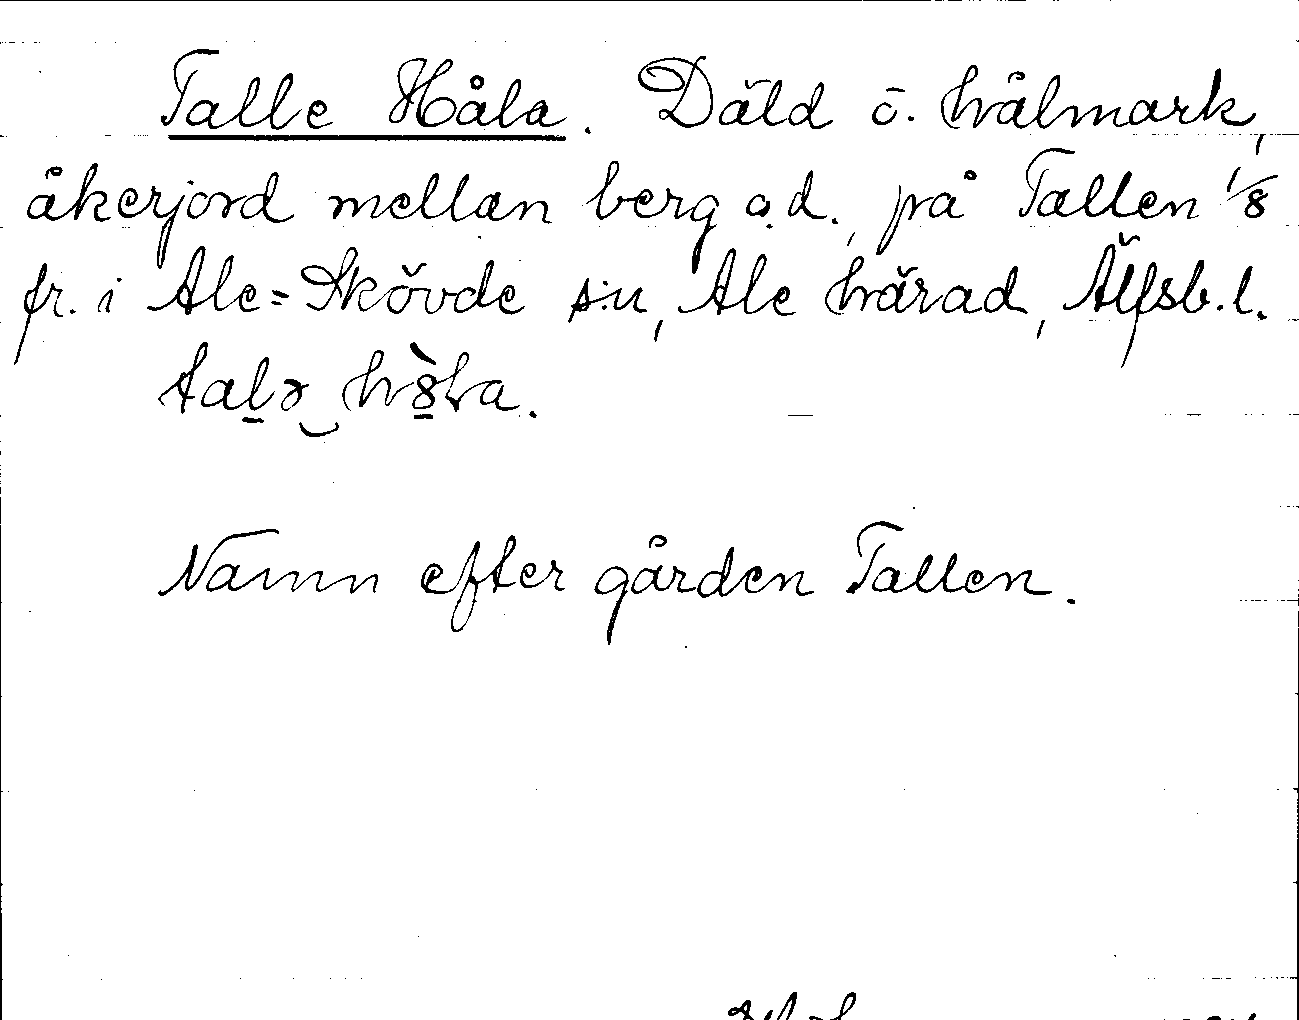 Talle Håla. Däld o. hålmark,
åkerjord mellan berg o.d., på Tallen 1/8
fr. i Ale=Skövde s:n, Ale härad, Älfsb. l.
Namn efter gården Tallen.